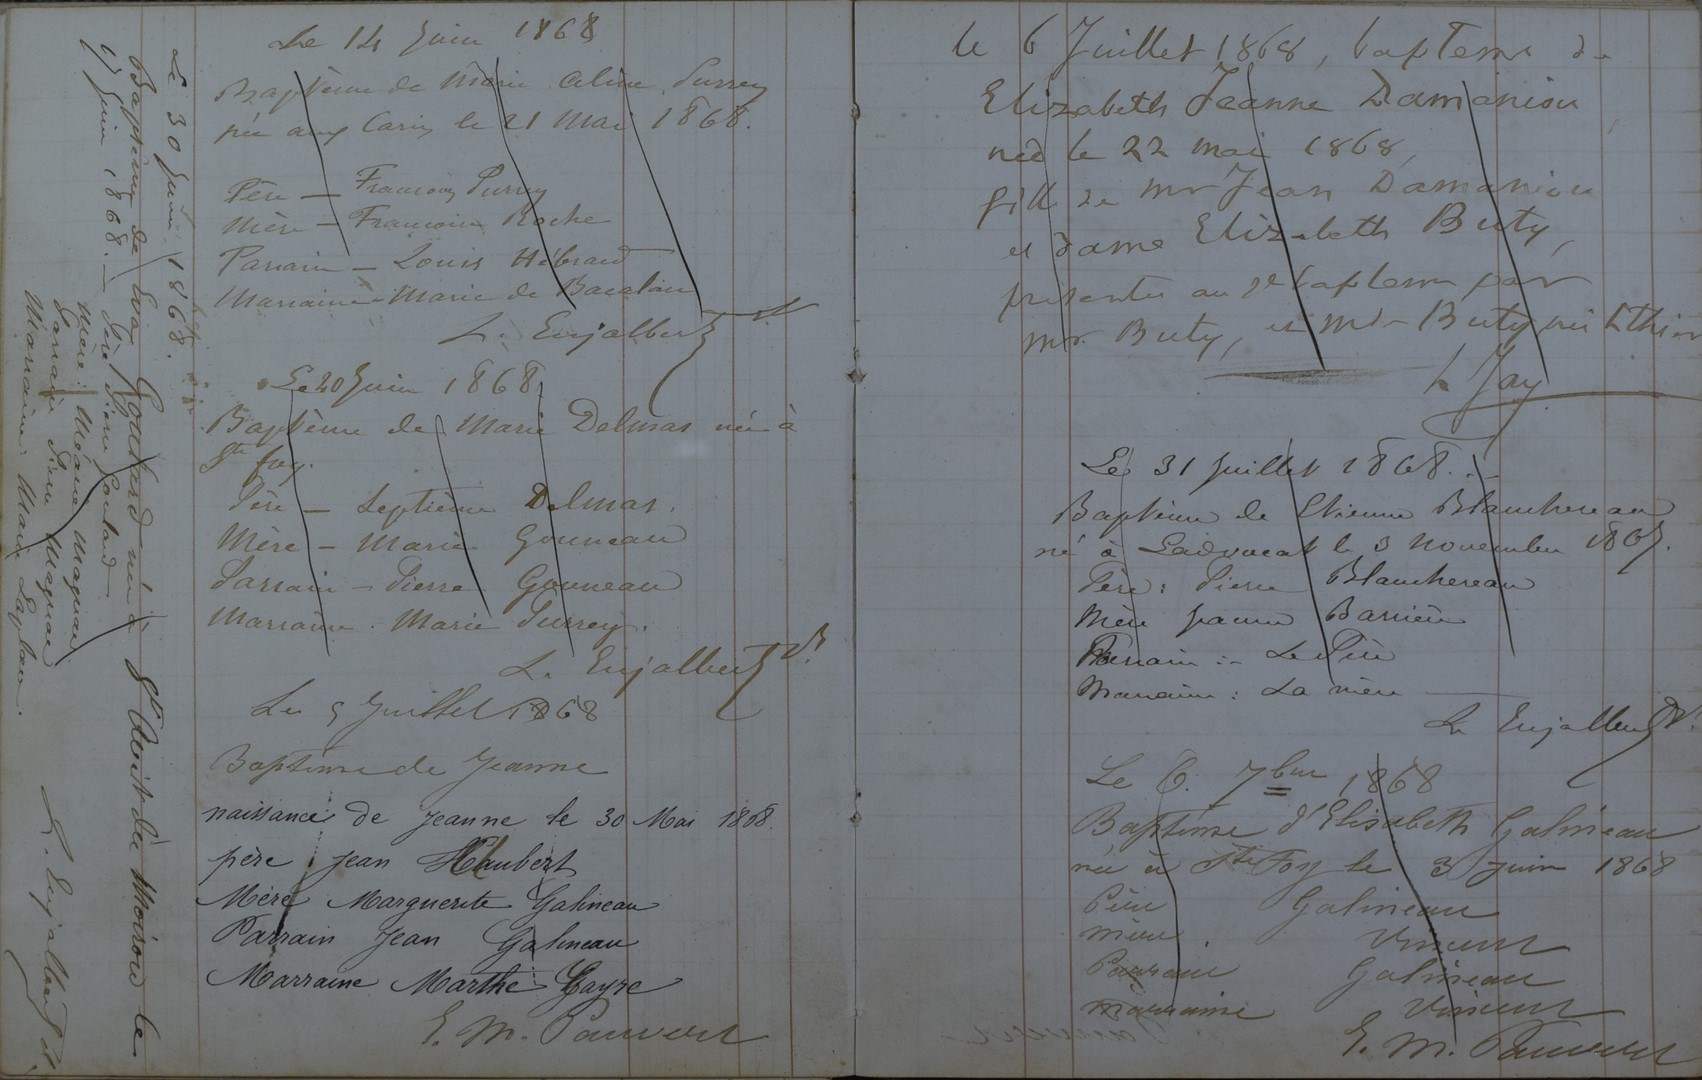 Le 14 Juin 1868
Baptème de Marie Celina Purrey
née aux Carix le 21 Mai 1868.
Père — François Purrey
Mère — Françoise Roche
Parrain — Louis Hébrard
Marraine — Marie de Bacalan
L. Enjalbert
Le 20 Juin 1868
Baptème de Marie Delmas née à
Ste foy.
Père — Septième Delmas.
Mère — Marie Gouneau
Parrain — Pierre Gouneau
Marraine. Marie Purrey.
L. Enjalbert
Le 5 Juillet 1868
Baptême de Jeanne
naissance de Jeanne le 30 Mai 1868.
père Jean Haubert
Mère Marguerite Galineau
Parrain Jean Galineau
Marraine Marthe Gayre
E. M. Pauvert
Le 30 Juin 1868.
Baptème de Eva Goulard née à St Avit de Moiron le
17 Juin 1868. — Père: Pierre Goulard —
Mère: Méanée Magnac
Parrain Pierre Magnac
Marraine: Marie Laplace.
L. Enjalbert
le 6 Juillet 1868, bapteme de
Elizabeth Jeanne Damaniou
née le 22 mai 1868,
fille de Mr Jean Damaniou
et dame Elizabeth Buty,
presentée au St bapteme par
Mr. Buty, et Mde Buty née
L Jay
Le 31 Juillet 1868.
Baptème de Etienne Blanchereau
né à Ladvocat le 3 Novembre 1867.
Père: Pierre Blanchereau
Mère Jeanne Barrière
Parrain: - Le Père
Marraine: La mère
L. Enjalbert
Le 6. 7bre 1868
Baptême d'Elisabeth Galineau
née à Ste Foy le 3 Juin 1868
Père Galineau
mère. Vincent
Parrain Galineau
marraine Vincent
E. M. Pauvert